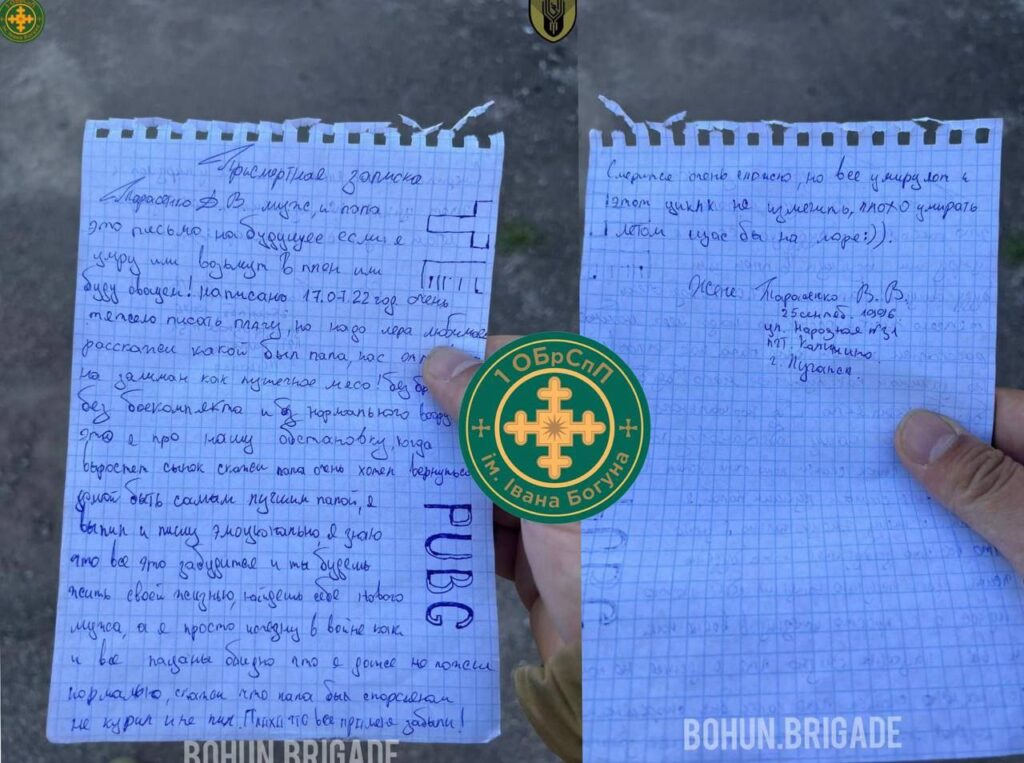 Присмертная записка
Тарасенко В.В. муж, и папа
это письмо на будущее если я
умру или возьмут в плен или
буду овощем! написано 17.07.22 год очень
тяжело писать плачу, но надо лера любимая
расскажи какой был папа, нас
на заклман как пушечное мясо! без
без боекомплекта и без нормального
это я про нашу обстановку, когда
выростет сынок скажи папа очень хотел вернуться
домой быть самым лучшим папой, я
выпил и пишу эмоционально я знаю
что все это забудится и ты будешь
жить своей жизнью, найдешь себе нового
мужа, а я просто исчезну в войне как
и все пацаны обидно что я даже не пожил
нормально, скажи что папа был спорсменом
не курил и не пил. Плохо что все про меня забыли!
PUBG
BOHUN.BRIGADE
1 ОБрСпП
ім. Івана Богуна
очень сложно, но все умирали и
этот цикл не изменить, плохо умирать
летом щас бы на море:)).
Жене Тарасенко В.В.
25 сентяб. 1996
ул. Народная
пгт. Калинино
г. Луганск
BOHUN.BRIGADE